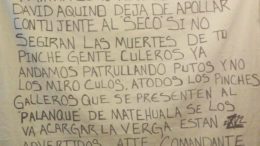 DAVID AQUINO DEJA DE APOLLAR
CON TU JENTE AL "SECO" SI NO
SEGIRAN LAS MUERTES DE TU
PINCHE GENTE CULEROS YA
ANDAMOS PATRULLANDO PUTOS Y NO
LOS MIRO CULOS, ATODOS LOS PINCHES
GALLEROS QUE SE PRESENTEN AL
PALANQUE DE MATEHUALA SE LOS
VA ACARGAR LA VERGA ESTAN
ADVERTIDOS ATTE COMANDANTE